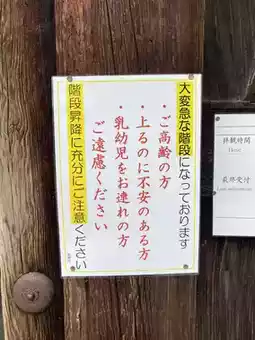 大変急な階段になっております
・ご高齢の方
・上るのに不安のある方
・乳幼児をお連れの方
ご遠慮ください
階段昇降に充分にご注意ください
拝観時間
最終受付